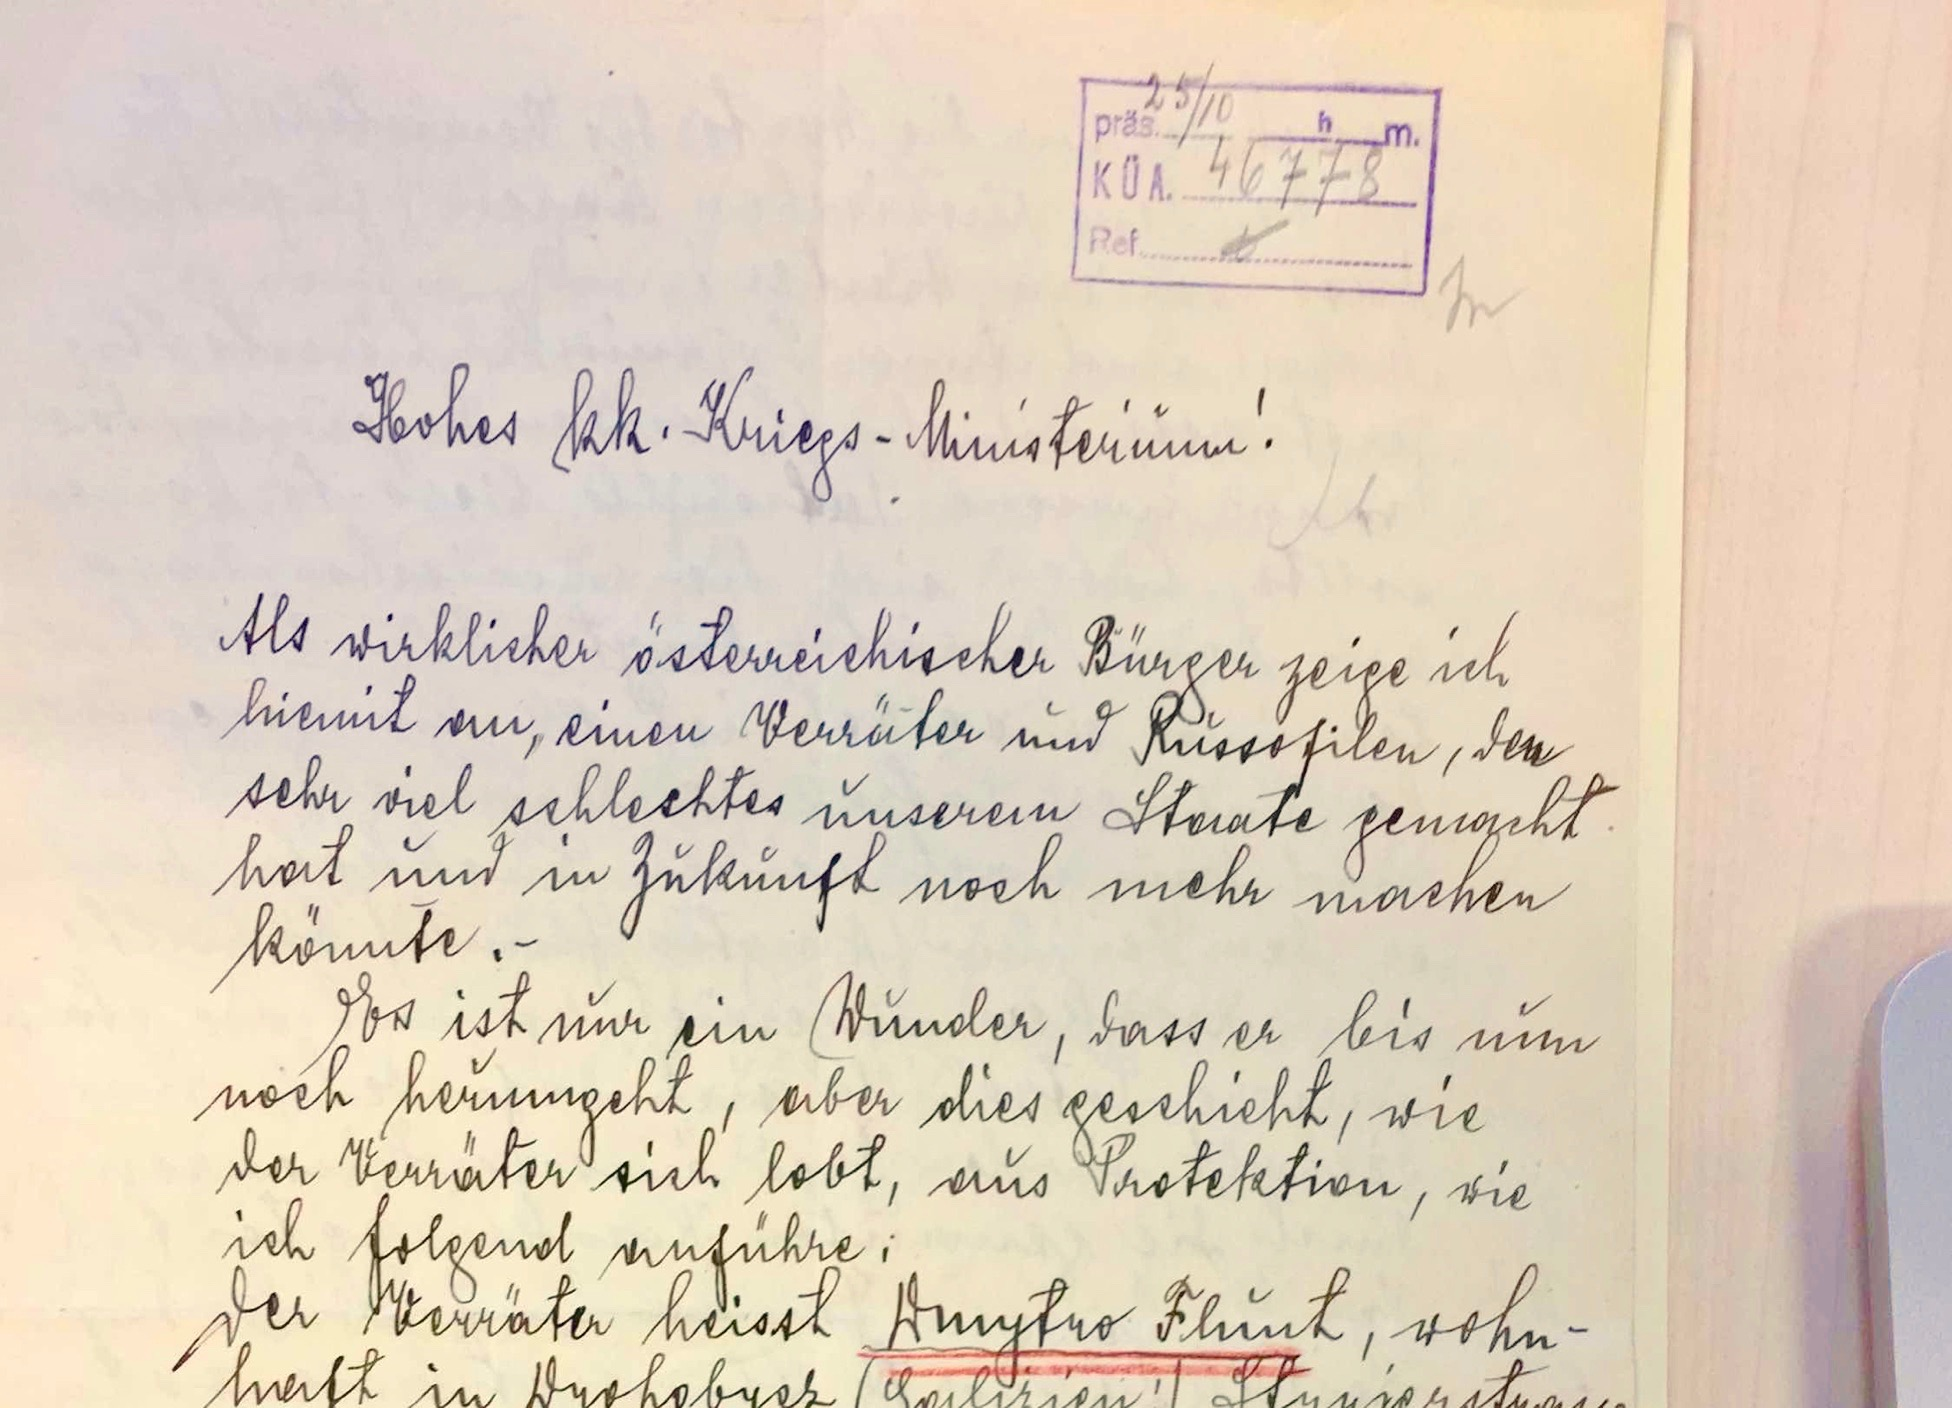 25/10
präs. h m.
KÜA. 46778
Ref.
Hohes kk. Kriegs-Ministerium!
Als wirklicher österreichischer Bürger zeige ich
hiemit an, einen Verräter und Russofilen, der
sehr viel schlechtes unserem Staate gemacht
hat und in Zukunft noch mehr machen
könnte.-
Es ist nur ein Wunder, dass er bis nun
noch herumgeht, aber dies geschieht, wie
der Verräter sich lobt, aus Protektion, wie
ich folgend anführe:
Der Verräter heisst Dmytro Flunt, wohn-
haft in Drohobycz (Galizien!) Stryjerstrasse